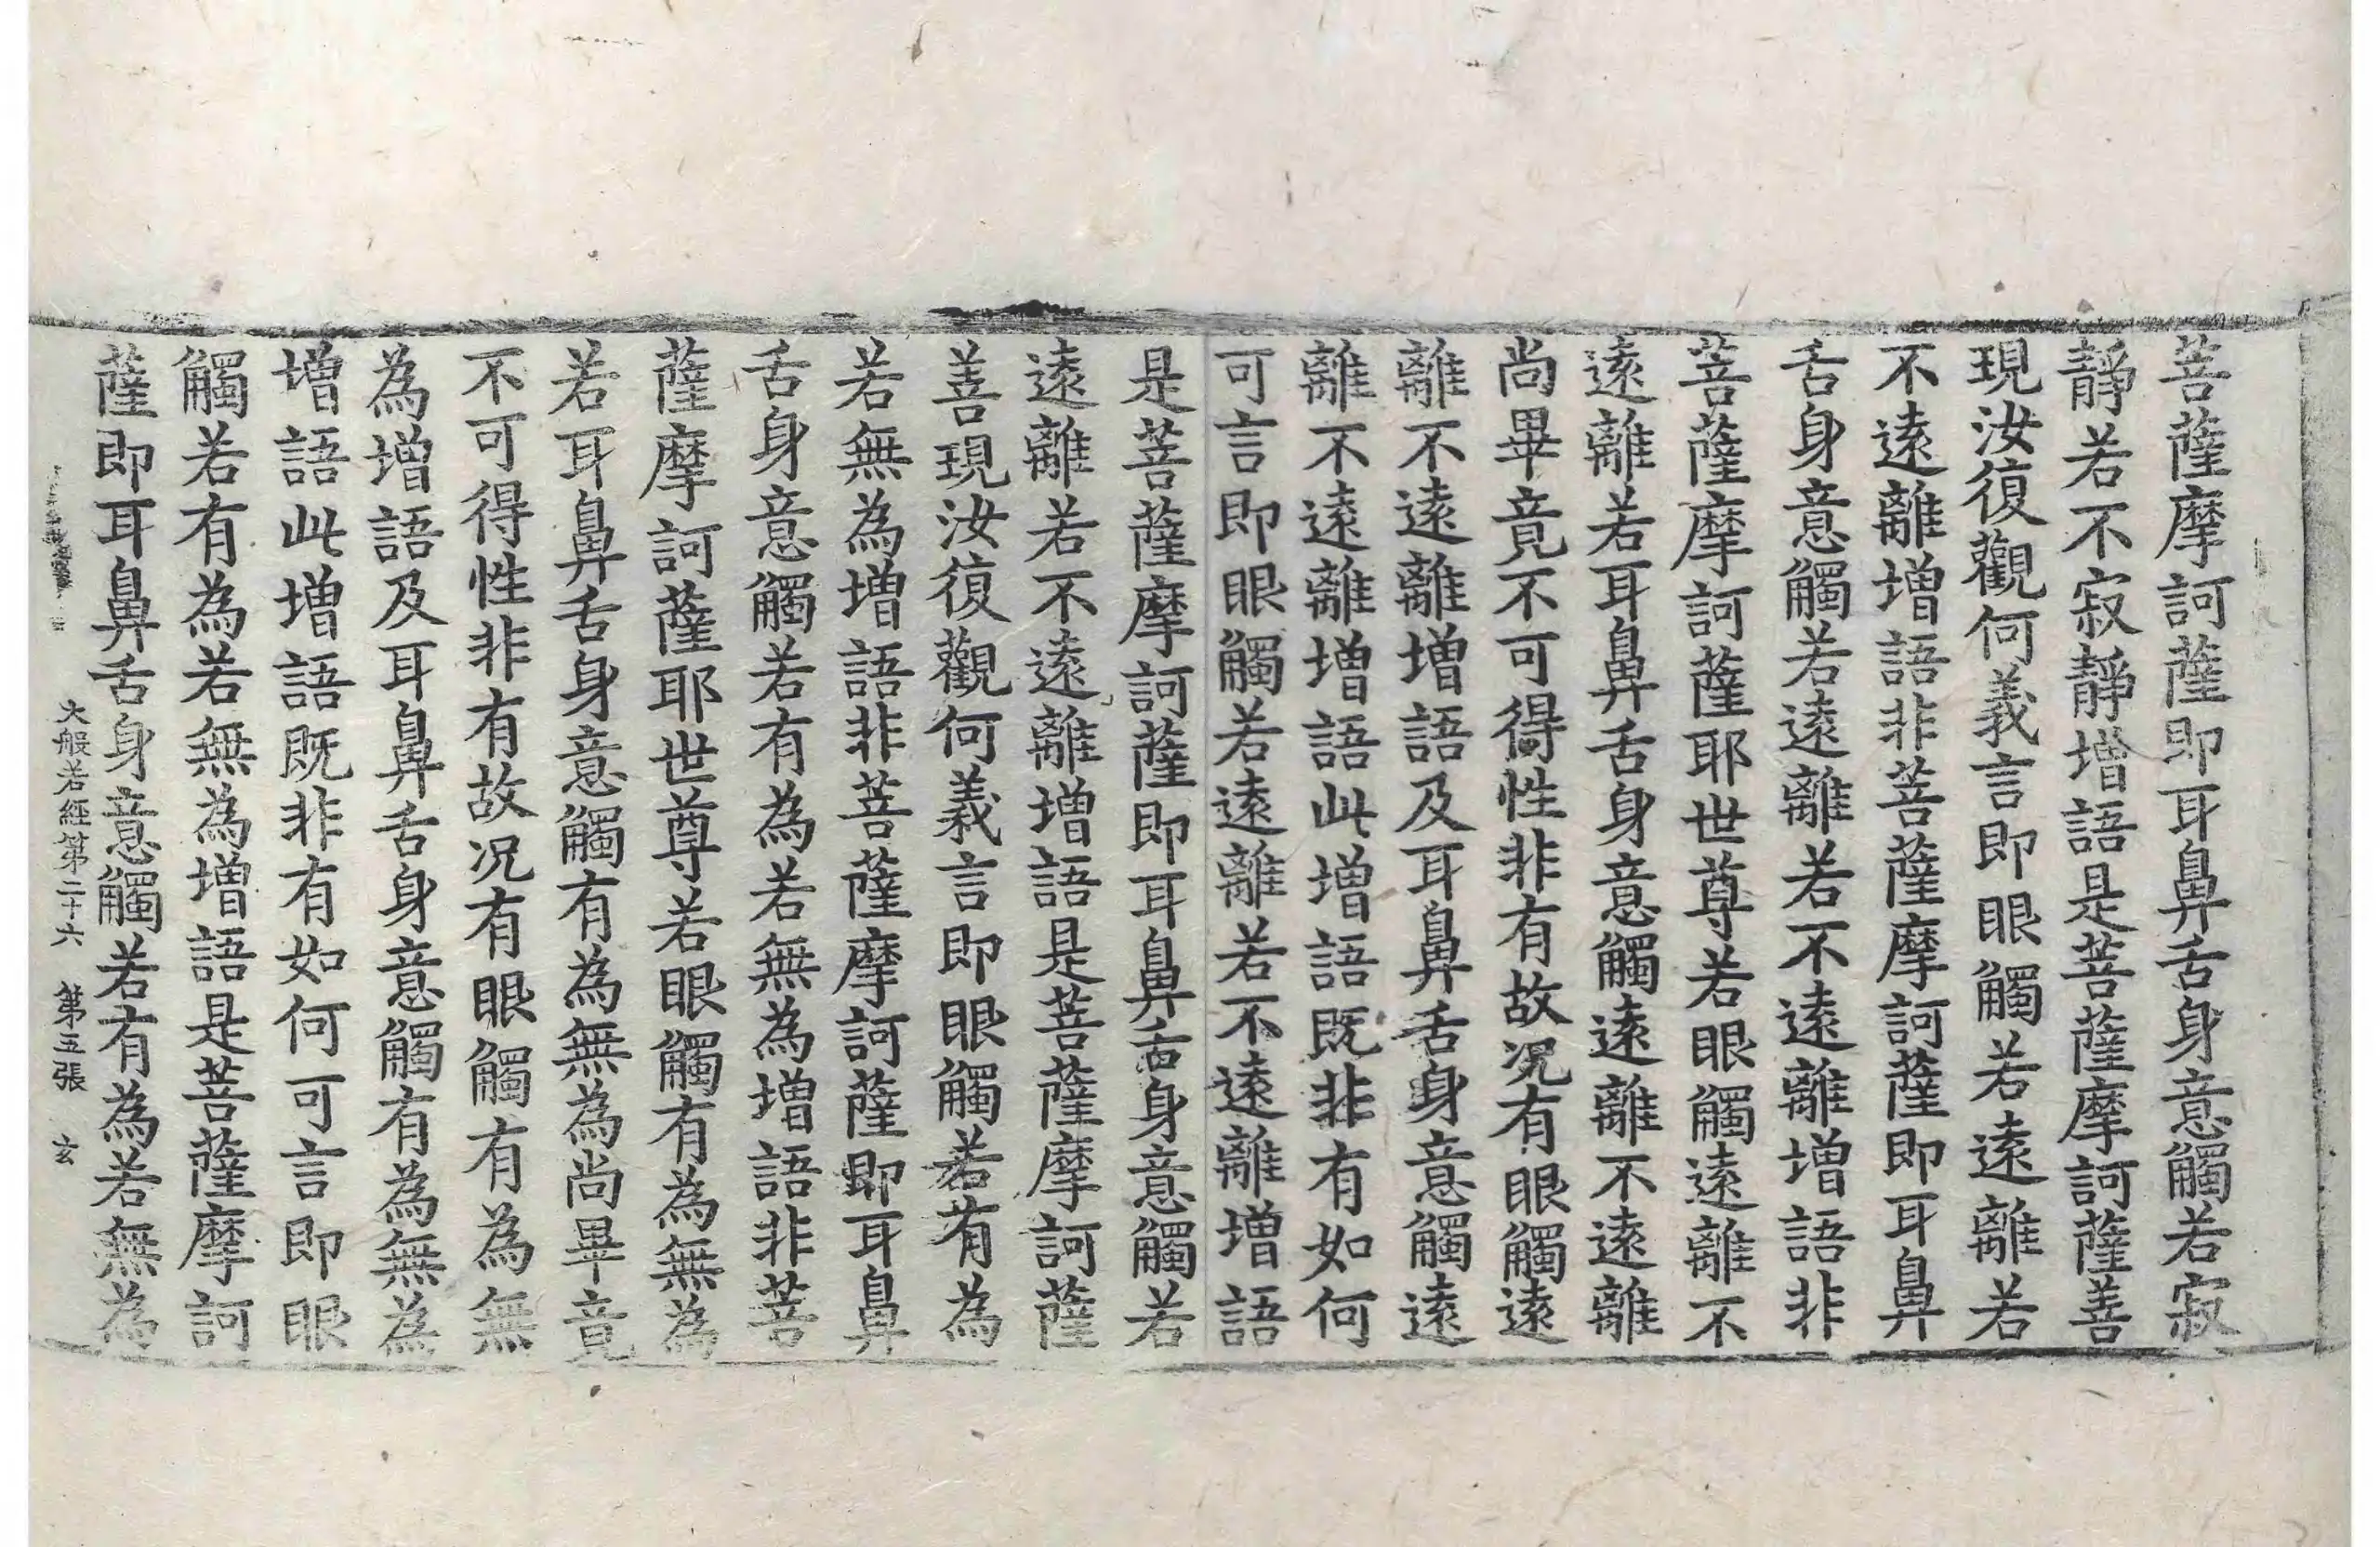 菩薩摩訶薩即耳鼻舌身意觸若寂
靜若不寂靜增語是菩薩摩訶薩善
現汝復觀何義言即眼觸若遠離若
不遠離增語非菩薩摩訶薩即耳鼻
舌身意觸若遠離若不遠離增語非
菩薩摩訶薩耶世尊若眼觸遠離不
遠離若耳鼻舌身意觸遠離不遠離
尚畢竟不可得性非有故況有眼觸遠
離不遠離增語及耳鼻舌身意觸遠
離不遠離增語此增語既非有如何
可言即眼觸若遠離若不遠離增語
是菩薩摩訶薩即耳鼻舌身意觸若
遠離若不遠離增語是菩薩摩訶薩
善現汝復觀何義言即眼觸若有為
若無為增語非菩薩摩訶薩即耳鼻
舌身意觸若有為若無為增語非菩
薩摩訶薩耶世尊若眼觸有為無為
若耳鼻舌身意觸有為無為尚畢竟
不可得性非有故況有眼觸有為無
為增語及耳鼻舌身意觸有為無為
增語此增語既非有如何可言即眼
觸若有為若無為增語是菩薩摩訶
薩即耳鼻舌身意觸若有為若無為
大般若經第二十六 第五張 玄